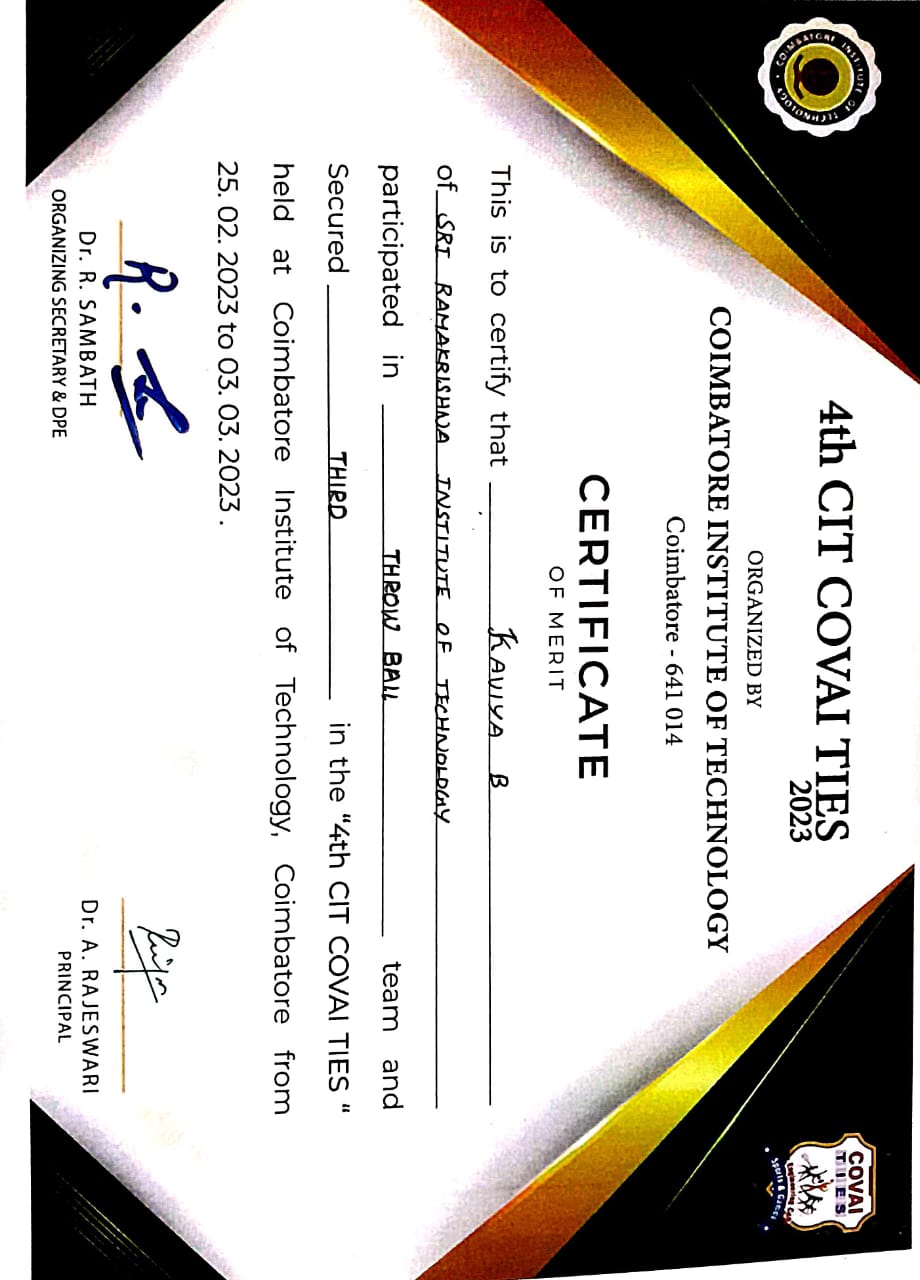 COIMBATORE INSTITUTE OF TECHNOLOGY
4th CIT COVAI TIES
2023
ORGANIZED BY
COIMBATORE INSTITUTE OF TECHNOLOGY
Coimbatore - 641 014
COVAI
TIES
Sports & Games
CERTIFICATE
OF MERIT
This is to certify that KAVIYA B
of SRI RAMAKRISHNA INSTITUTE OF TECHNOLOGY
participated in THROW BALL team and
Secured THIRD in the “4th CIT COVAI TIES “
held at Coimbatore Institute of Technology, Coimbatore from
25. 02. 2023 to 03. 03. 2023 .
Dr. R. SAMBATH
ORGANIZING SECRETARY & DPE
Dr. A. RAJESWARI
PRINCIPAL